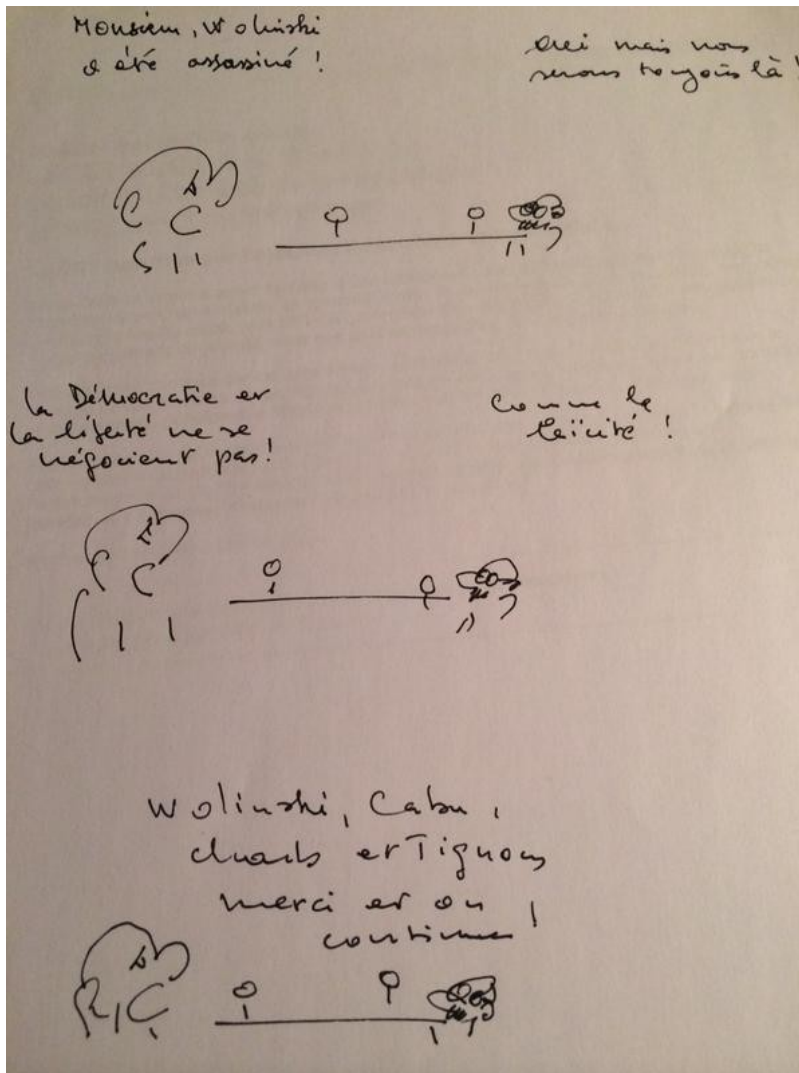 Monsieur, Wolinski
a été assassiné !
oui mais nous
serons toujours là !
la Démocratie et
la liberté ne se
négocient pas !
comme la
laïcité !
Wolinski, Cabu,
charb et Tignous
merci et on
continue !